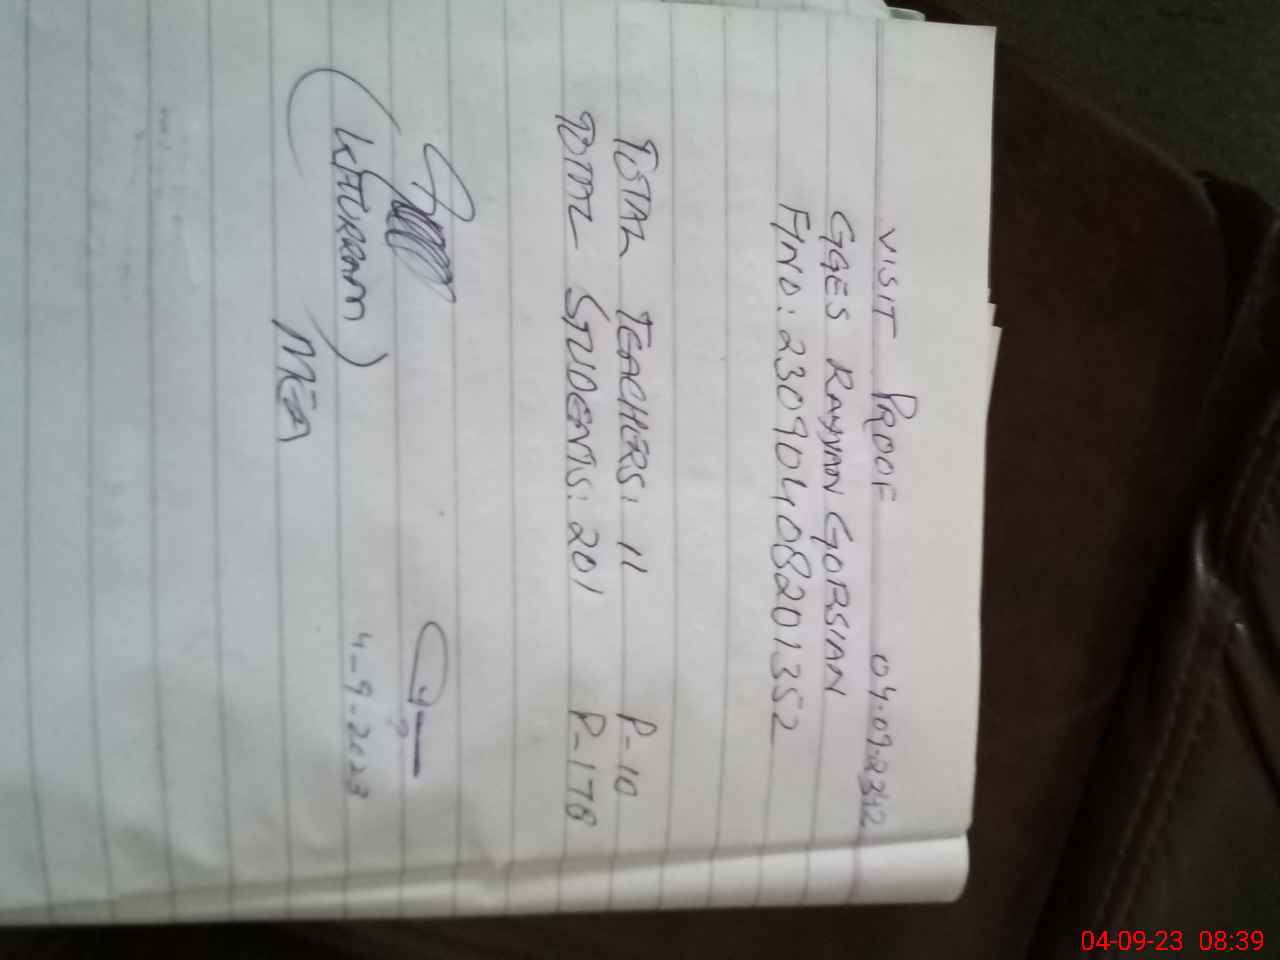 VISIT PROOF 04.09.23
GGES RAYYAN GORSIAN
F/NO: 23090408201352
TOTAL TEACHERS: 11 P-10
TOTAL STUDENTS: 201 P-178
(KHURRAM)
4-9-2023
MEA
04-09-23 08:39